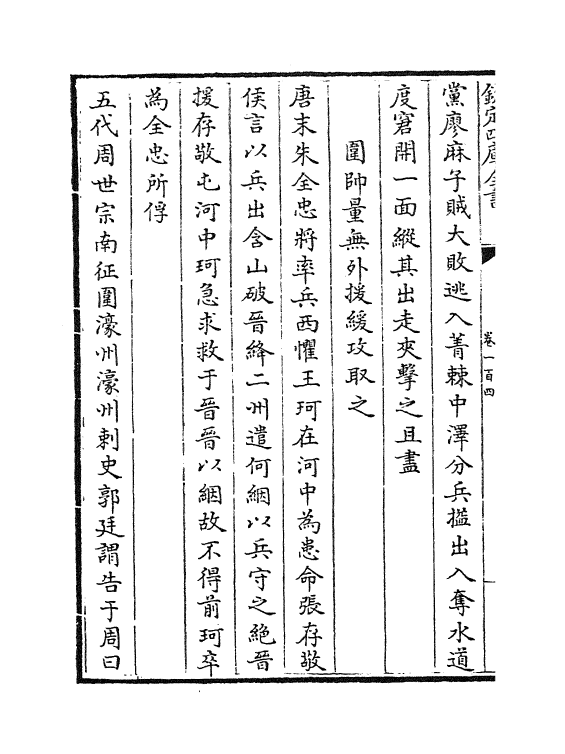 欽定四庫全書
卷一百四
黨廖麻子賊大敗逃入菁棘中澤分兵搤出入奪水道
度窘開一面縱其出走夾擊之且盡
圍帥量無外援緩攻取之
唐末朱全忠將率兵西懼王珂在河中為患命張存敬
侯言以兵出含山破晉絳二州遣何絪以兵守之絶晉
援存敬屯河中珂急求救于晉晉以絪故不得前珂卒
為全忠所俘
五代周世宗南征圍濠州濠州刺史郭廷謂告于周曰